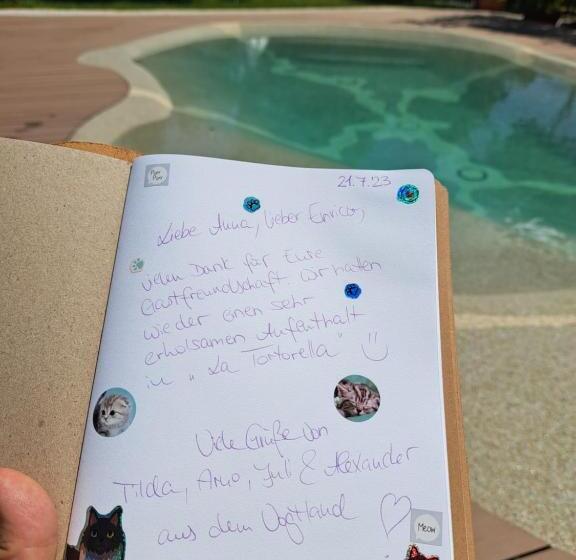 21.7.23
Liebe Anna, lieber Enrico,
vielen Dank für Eure
Gastfreundschaft. Wir hatten
wieder einen sehr
erholsamen Aufenthalt
in "La Tortorella"
Viele Grüße von
Tilda, Arno, Juli & Alexander
aus dem Vogtland
Meow